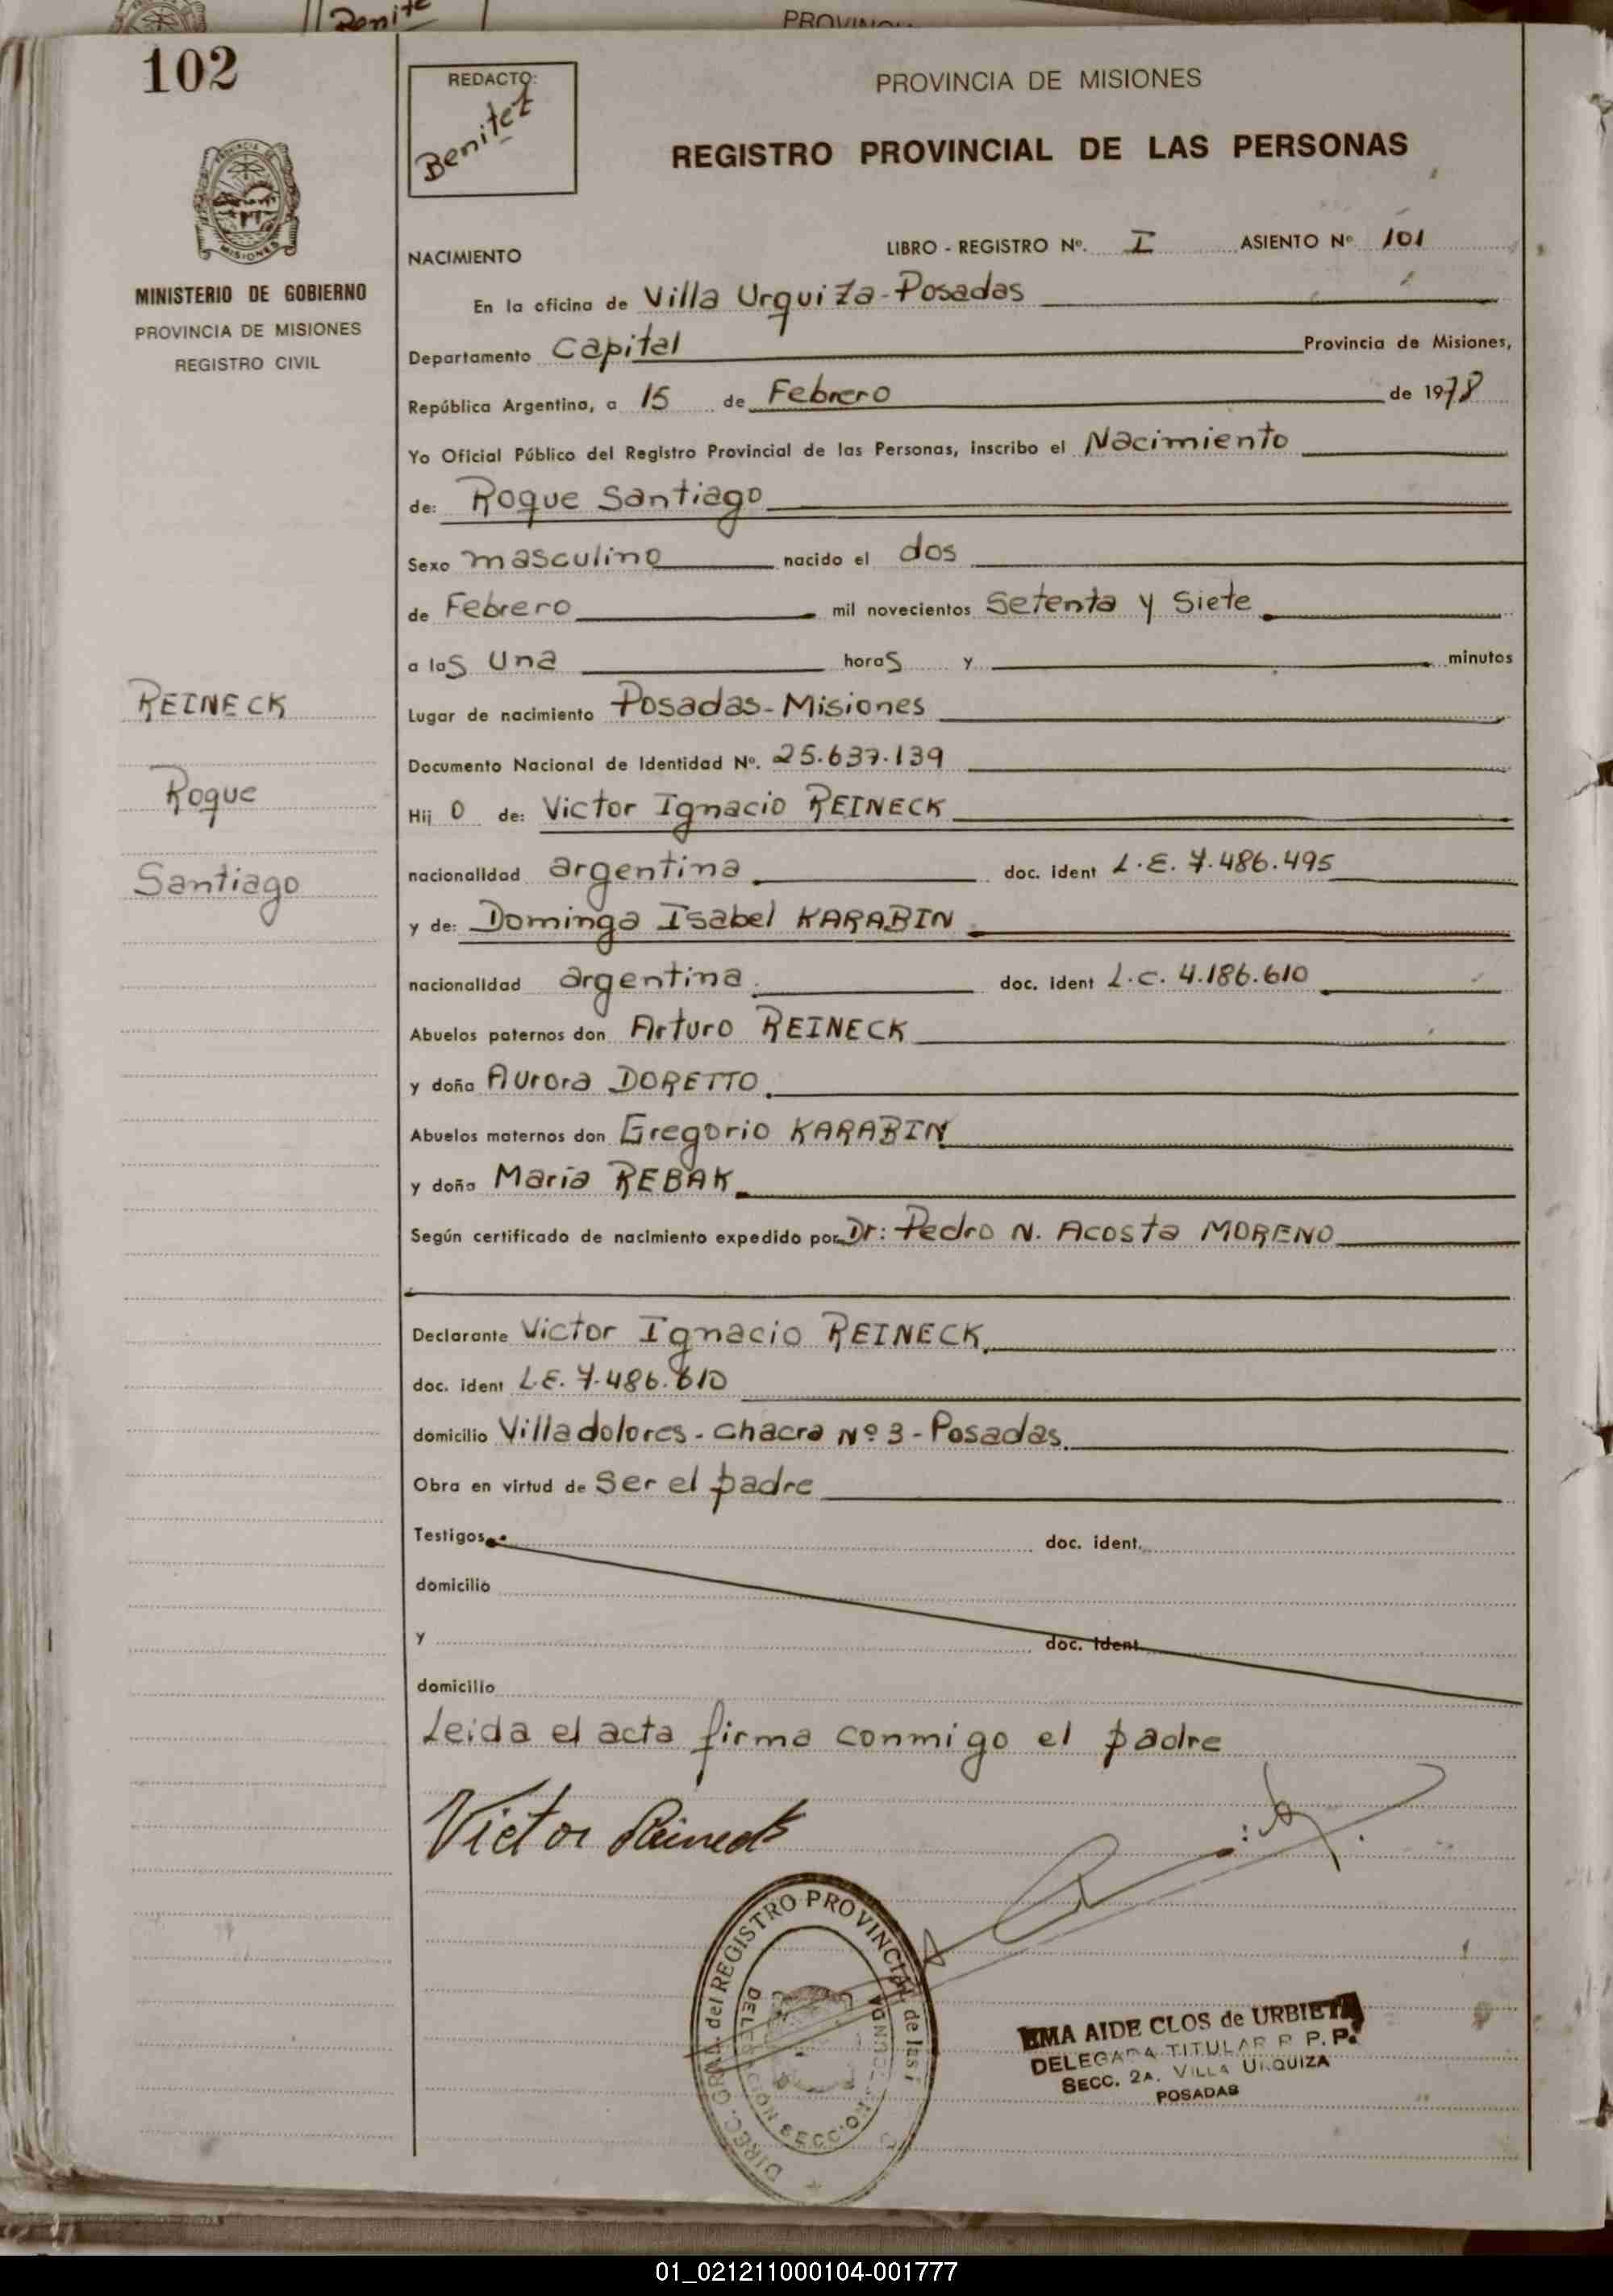 Benite
PROVIN
102
REDACTO:
Benitez
PROVINCIA DE MISIONES
REGISTRO PROVINCIAL DE LAS PERSONAS
MISIONES
MINISTERIO DE GOBIERNO
PROVINCIA DE MISIONES
REGISTRO CIVIL
NACIMIENTO
LIBRO - REGISTRO Nº. I ASIENTO Nº 101
En la oficina de Villa Urquiza - Posadas
Departamento Capital Provincia de Misiones,
República Argentina, a 15 de Febrero de 1978
Yo Oficial Público del Registro Provincial de las Personas, inscribo el Nacimiento
de: Roque Santiago
Sexo masculino nacido el dos
de Febrero mil novecientos Setenta y Siete
a las una horas y minutos
REINECK
Roque
Santiago
Lugar de nacimiento Posadas - Misiones
Documento Nacional de Identidad Nº. 25.637.139
Hij o de: Victor Ignacio REINECK
nacionalidad argentina doc. ident L.E. 7.486.495
y de: Dominga Isabel KARABIN
nacionalidad argentina doc. ident L.C. 4.186.610
Abuelos paternos don Arturo REINECK
y doña Aurora DORETTO
Abuelos maternos don Gregorio KARABIN
y doña María REBAK
Según certificado de nacimiento expedido por Dr: Pedro N. Acosta MORENO
Declarante Victor Ignacio REINECK
doc. ident L.E. 7.486.610
domicilio Villa dolores - chacra Nº 3 - Posadas.
Obra en virtud de Ser el padre
Testigos doc. ident.
domicilio
y doc. ident.
domicilio
Leida el acta firma conmigo el padre
Victor Reineck
DIREC. GRAL. del REGISTRO PROVINCIAL de las
SECCION
EMA AIDE CLOS de URBIETA
DELEGADA TITULAR R. P. P.
SECC. 2A. VILLA URQUIZA
POSADAS
01_021211000104-001777